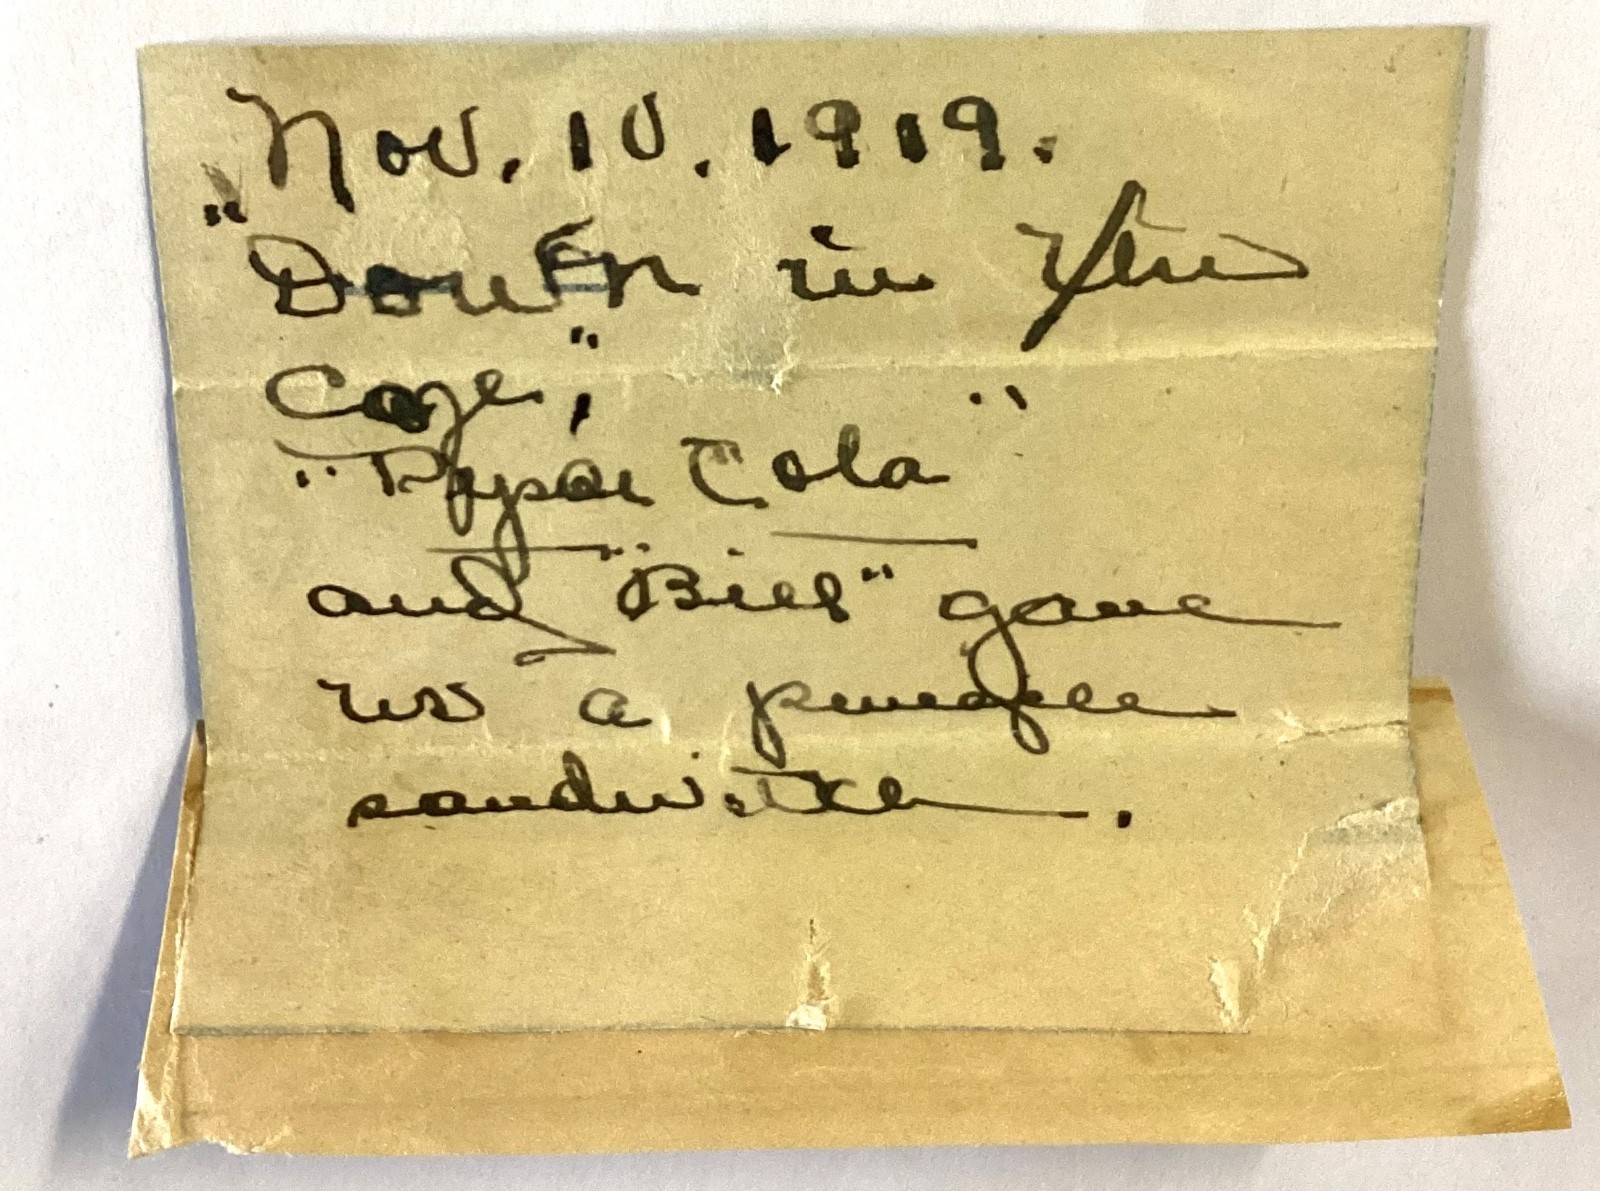 Nov. 10. 1919.
"Down in The
Coze",
"Pepsi Cola"
and "Bill" gave
us a pineaple
sandwitch.